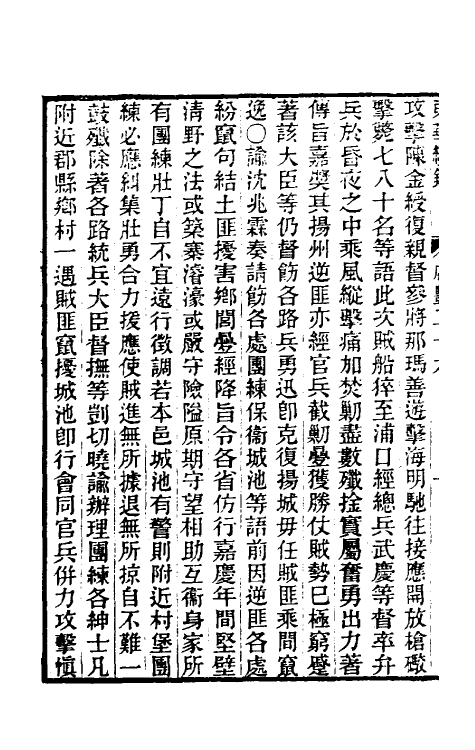 攻擊陳金綬復親督參將那瑪善遊擊海明馳往接應開放槍礮
擊斃七八十名等語此次賊船猝至浦口經總兵武慶等督率弁
兵於昏夜之中乘風縱擊痛加焚勦盡數殲捦實屬奮勇出力著
傳旨嘉奬其揚州逆匪亦經官兵截勦疊獲勝仗賊勢已極窮蹙
著該大臣等仍督飭各路兵勇迅卽克復揚城毋任賊匪乘間竄
逸〇諭沈兆霖奏請飭各處團練保衞城池等語前因逆匪各處
紛竄句結土匪擾害鄉閭疊經降旨令各省仿行嘉慶年間堅壁
淸野之法或築寨濬濠或嚴守險隘原期守望相助互衞身家所
有團練壯丁自不宜遠行徵調若本邑城池有警則附近村堡團
練必應糾集壯勇合力援應使賊進無所據退無所掠自不難一
鼓殲除著各路統兵大臣督撫等剴切曉諭辦理團練各紳士凡
附近郡縣鄉村一遇賊匪竄擾城池卽行會同官兵倂力攻擊愼